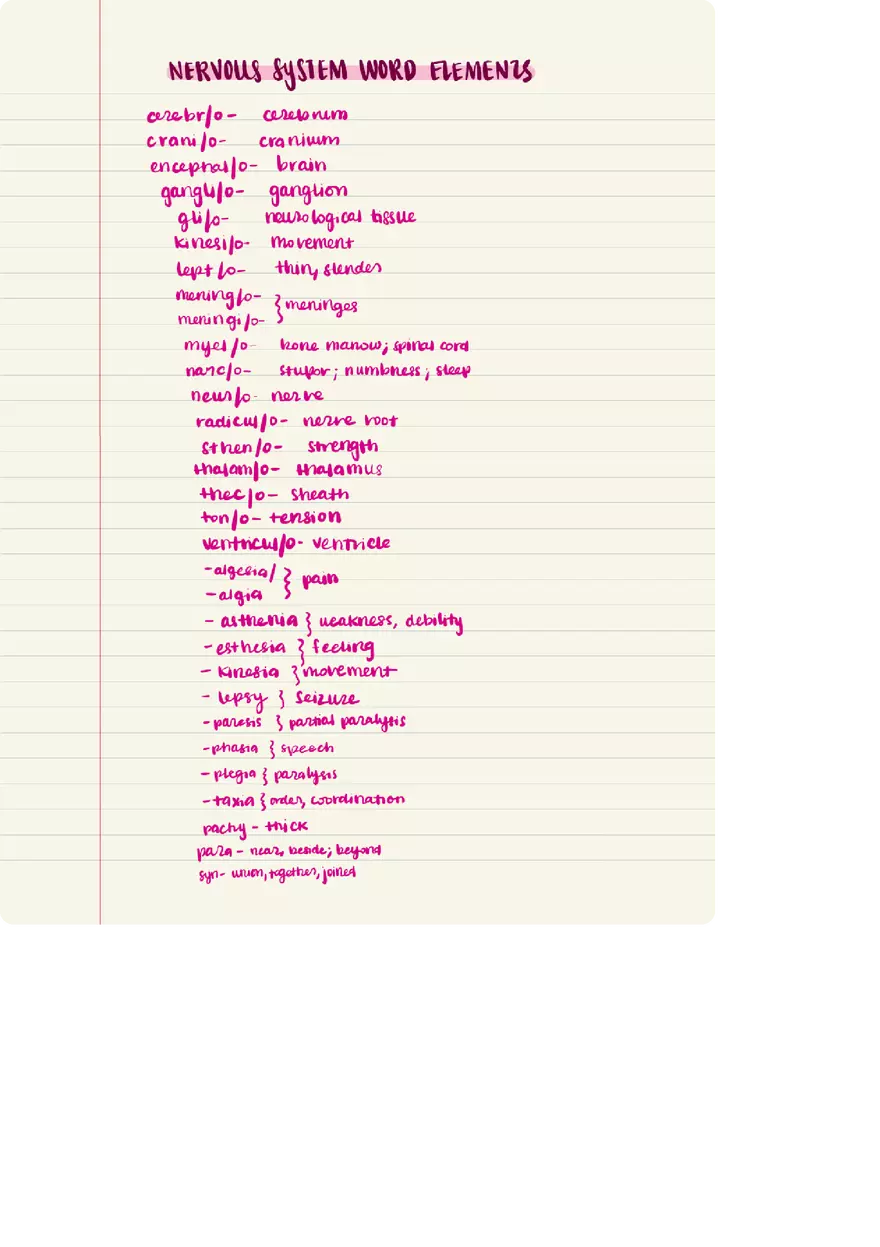 NERVOUS SYSTEM WORD ELEMENTS
cerebr/o- cerebrum
crani/o- cranium
encephal/o- brain
gangli/o- ganglion
gli/o- neurological tissue
kinesi/o- movement
lept/o- thin, slender
mening/o-
meningi/o- } meninges
myel/o- bone marrow; spinal cord
narc/o- stupor; numbness; sleep
neur/o- nerve
radicul/o- nerve root
sthen/o- strength
thalam/o- thalamus
thec/o- sheath
ton/o- tension
ventricul/o- ventricle
-algesia/
-algia } pain
- asthenia } weakness, debility
-esthesia } feeling
- kinesia } movement
- lepsy } seizure
-paresis } partial paralysis
-phasia } speech
- plegia } paralysis
-taxia { order, coordination
pachy- thick
para- near, beside; beyond
syn- union, together, joined